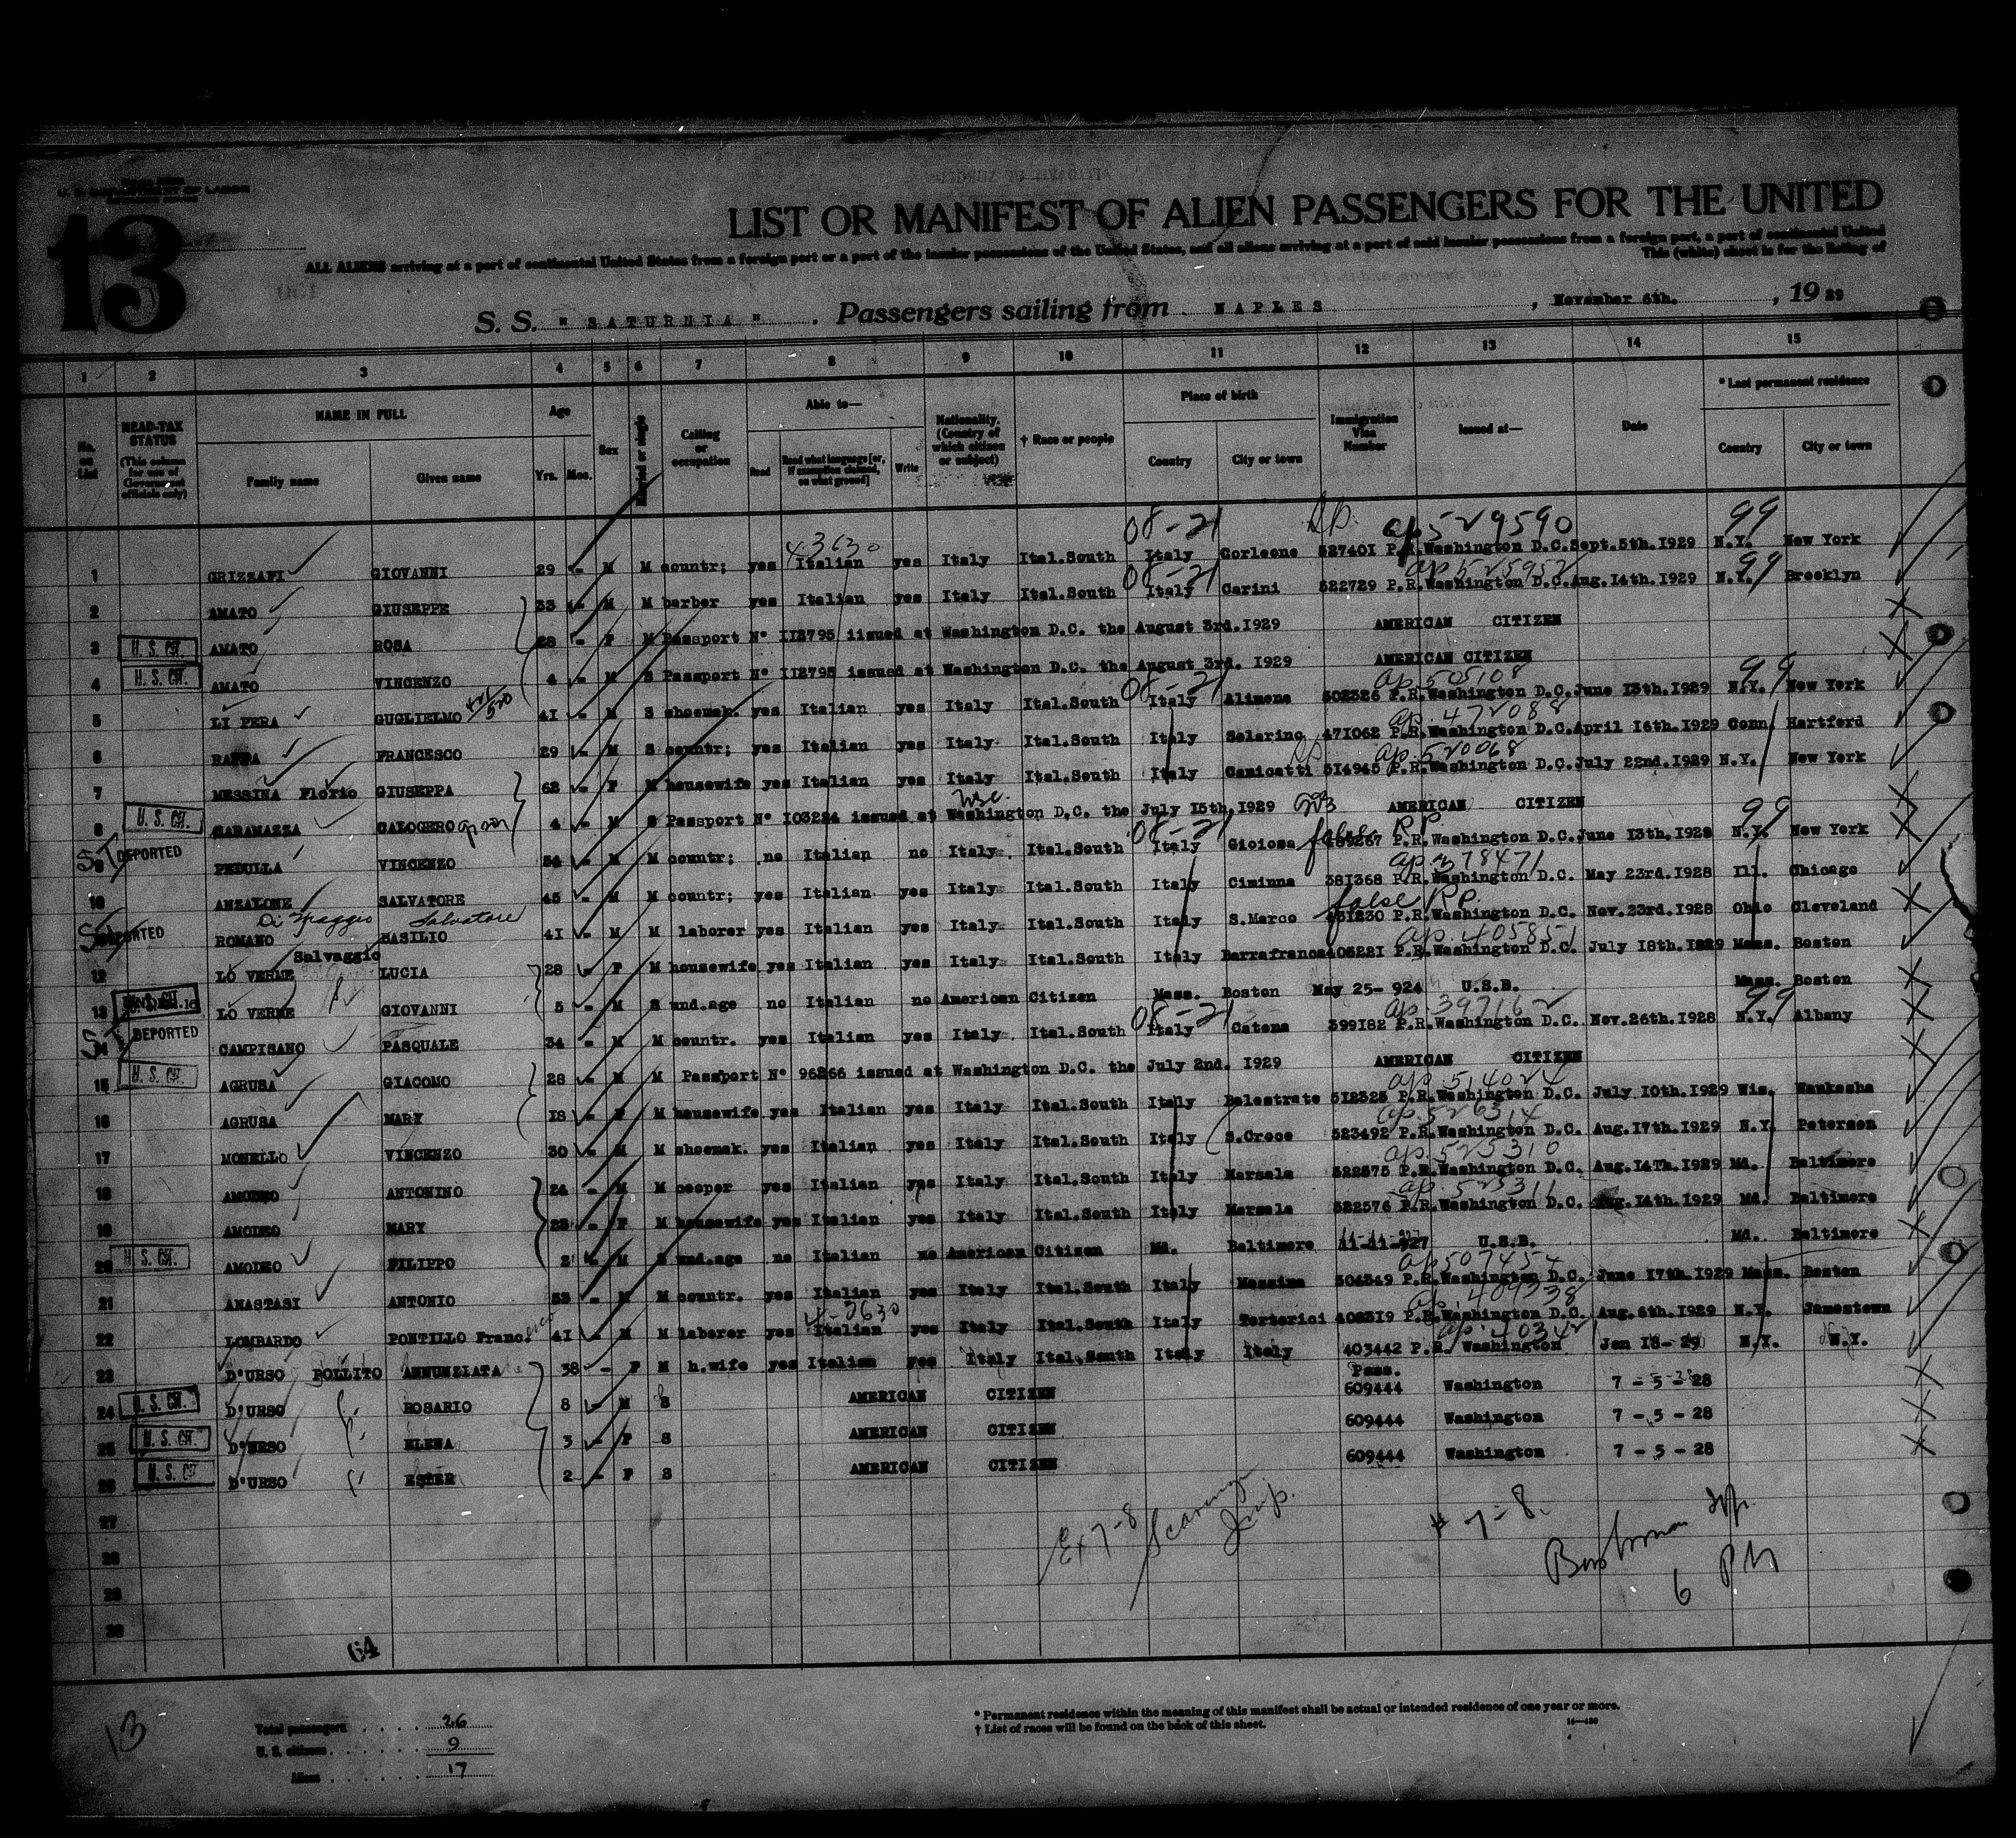 U. S. DEPARTMENT OF LABOR
13
LIST OR MANIFEST OF ALIEN PASSENGERS FOR THE UNITED
ALL ALIENS arriving at a port of continental United States from a foreign port or a port of the insular possessions of the United States, and all aliens arriving at a port of said insular possessions from a foreign port, a port of continental United
This (white) sheet is for the listing of
S. S. "SATURNIA" . Passengers sailing from NAPLES , November 6th. , 19 29
1 2 3 4 5 6 7 8 9 10 11 12 13 14 15
No. on List
HEAD-TAX STATUS (This column for use of Government officials only)
NAME IN FULL Family name Given name
Age Yrs. Mos.
Sex
Married or single
Calling or occupation
Able to— Read Read what language [or, if exemption claimed, on what ground] Write
Nationality. (Country of which citizen or subject)
† Race or people
Place of birth Country City or town
Immigration Visa Number
Issued at—
Date
* Last permanent residence Country City or town
08-21 ap 529590 99
43630
1 GRIZZAFI GIOVANNI 29 - M M countr; yes Italian yes Italy Ital.South Italy Corleone 527401 P.R.Washington D.C. Sept.5th.1929 N.Y. New York
08-21 ap 525952 99
2 AMATO GIUSEPPE 33 - M M barber yes Italian yes Italy Ital.South Italy Carini 522729 P.R.Washington D.C. Aug.14th.1929 N.Y. Brooklyn
3 U. S. CIT. AMATO ROSA 28 - F M Passport N° 112795 iissued at Washington D.C. the August 3rd.1929 AMERICAN CITIZEN
4 U. S. CIT. AMATO VINCENZO 4 - M S Passport N° 112795 issued at Washington D.C. the August 3rd. 1929 AMERICAN CITIZEN
08-21 ap. 505108 99
5 LI PERA GUGLIELMO 41 - M S shoemak. yes Italian yes Italy Ital.South Italy Alimena 502326 P.R.Washington D.C. June 13th.1929 N.Y. New York
ap. 472088
6 RAPPA FRANCESCO 29 - M S countr; yes Italian yes Italy Ital.South Italy Solarino 471062 P.R.Washington D.C. April 16th.1929 Conn. Hartford
ap. 520068
7 MESSINA Florio GIUSEPPA 62 - F M housewife yes Italian yes Italy Ital.South Italy Canicatti 514945 P.R.Washington D.C. July 22nd.1929 N.Y. New York
8 U. S. CIT. SARAMAZZA CALOGERO 4 - M S Passport N° 103224 issued at Washington D.C. the July 15th.1929 AMERICAN CITIZEN
08-21 false R.P. 99
9 DEPORTED PEDULLA VINCENZO 34 - M M countr; no Italian no Italy Ital.South Italy Gioiosa 489267 P.R.Washington D.C. June 13th.1928 N.Y. New York
ap. 378471
10 ANZALONE SALVATORE 45 - M M countr; yes Italian yes Italy Ital.South Italy Ciminna 381368 P.R.Washington D.C. May 23rd.1928 Ill. Chicago
Di Maggio Salvatore false R.P.
DEPORTED ROMANO BASILIO 41 - M M laborer yes Italian yes Italy Ital.South Italy S.Marco 431230 P.R.Washington D.C. Nov.23rd.1928 Ohio Cleveland
Salvaggio ap. 405851
12 LO VERME LUCIA 28 - F M housewife yes Italian yes Italy Ital.South Italy Barrafranca 405221 P.R.Washington D.C. July 18th.1929 Mass. Boston
13 LO VERME GIOVANNI 5 - M S und.age no Italian no American Citizen Mass. Boston May 25- 924 U.S.B. Mass. Boston
08-21 ap. 397162 99
14 DEPORTED CAMPISANO PASQUALE 34 - M M countr. yes Italian yes Italy Ital.South Italy Catena 399182 P.R.Washington D.C. Nov.26th.1928 N.Y. Albany
15 U. S. CIT. AGRUSA GIACOMO 28 - M M Passport N° 96266 issued at Washington D.C. the July 2nd. 1929 AMERICAN CITIZEN
ap. 514024
16 AGRUSA MARY 18 - F M housewife yes Italian yes Italy Ital.South Italy Balestrate 512325 P.R.Washington D.C. July 10th.1929 Wis. Waukesha
ap. 526314
17 MONELLO VINCENZO 30 - M M shoemak. yes Italian yes Italy Ital.South Italy S.Croce 523492 P.R.Washington D.C. Aug.17th.1929 N.Y. Paterson
ap. 525310
18 AMODEO ANTONINO 24 - M M cooper yes Italian yes Italy Ital.South Italy Marsala 522575 P.R.Washington D.C. Aug.14Th.1929 Md. Baltimore
ap. 525311
19 AMODEO MARY 23 - F M housewife yes Italian yes Italy Ital.South Italy Marsala 522576 P.R.Washington D.C. Aug.14th.1929 Md. Baltimore
20 U. S. CIT. AMODEO FILIPPO 2 - M S und.age no Italian no American Citizen Md. Baltimore 11-11-927 U.S.B. Md. Baltimore
ap 507454
21 ANASTASI ANTONIO 53 - M M countr. yes Italian yes Italy Ital.South Italy Messina 504349 P.R.Washington D.C. June 17th.1929 Mass. Boston
4-3630 ap. 409338
22 LOMBARDO PONTILLO Franc. 41 - M M laborer yes Italian yes Italy Ital.South Italy Tortorici 408319 P.R.Washington D.C. Aug.6th.1929 N.Y. Jamestown
23 D'URSO POLLITO ANNUNZIATA 38 - F M h.wife yes Italian yes Italy Ital.South Italy Italy 403442 P.R. Washington Jan 18- 29 N.Y. N.Y.
Pass.
24 U. S. CIT. D'URSO ROSARIO 8 - M S AMERICAN CITIZEN 609444 Washington 7 - 5 - 28
25 U. S. CIT. D'URSO ELENA 3 - F S AMERICAN CITIZEN 609444 Washington 7 - 5 - 28
26 U. S. CIT. D'URSO ESTER 2 - F S AMERICAN CITIZEN 609444 Washington 7 - 5 - 28
27
28
29
30
Ex 7-8 Insp.
# 7-8.
6 PM
64
13
Total passengers . . . . . 26
U. S. citizens . . . . . . 9
Aliens . . . . . . 17
* Permanent residence within the meaning of this manifest shall be actual or intended residence of one year or more.
† List of races will be found on the back of this sheet.